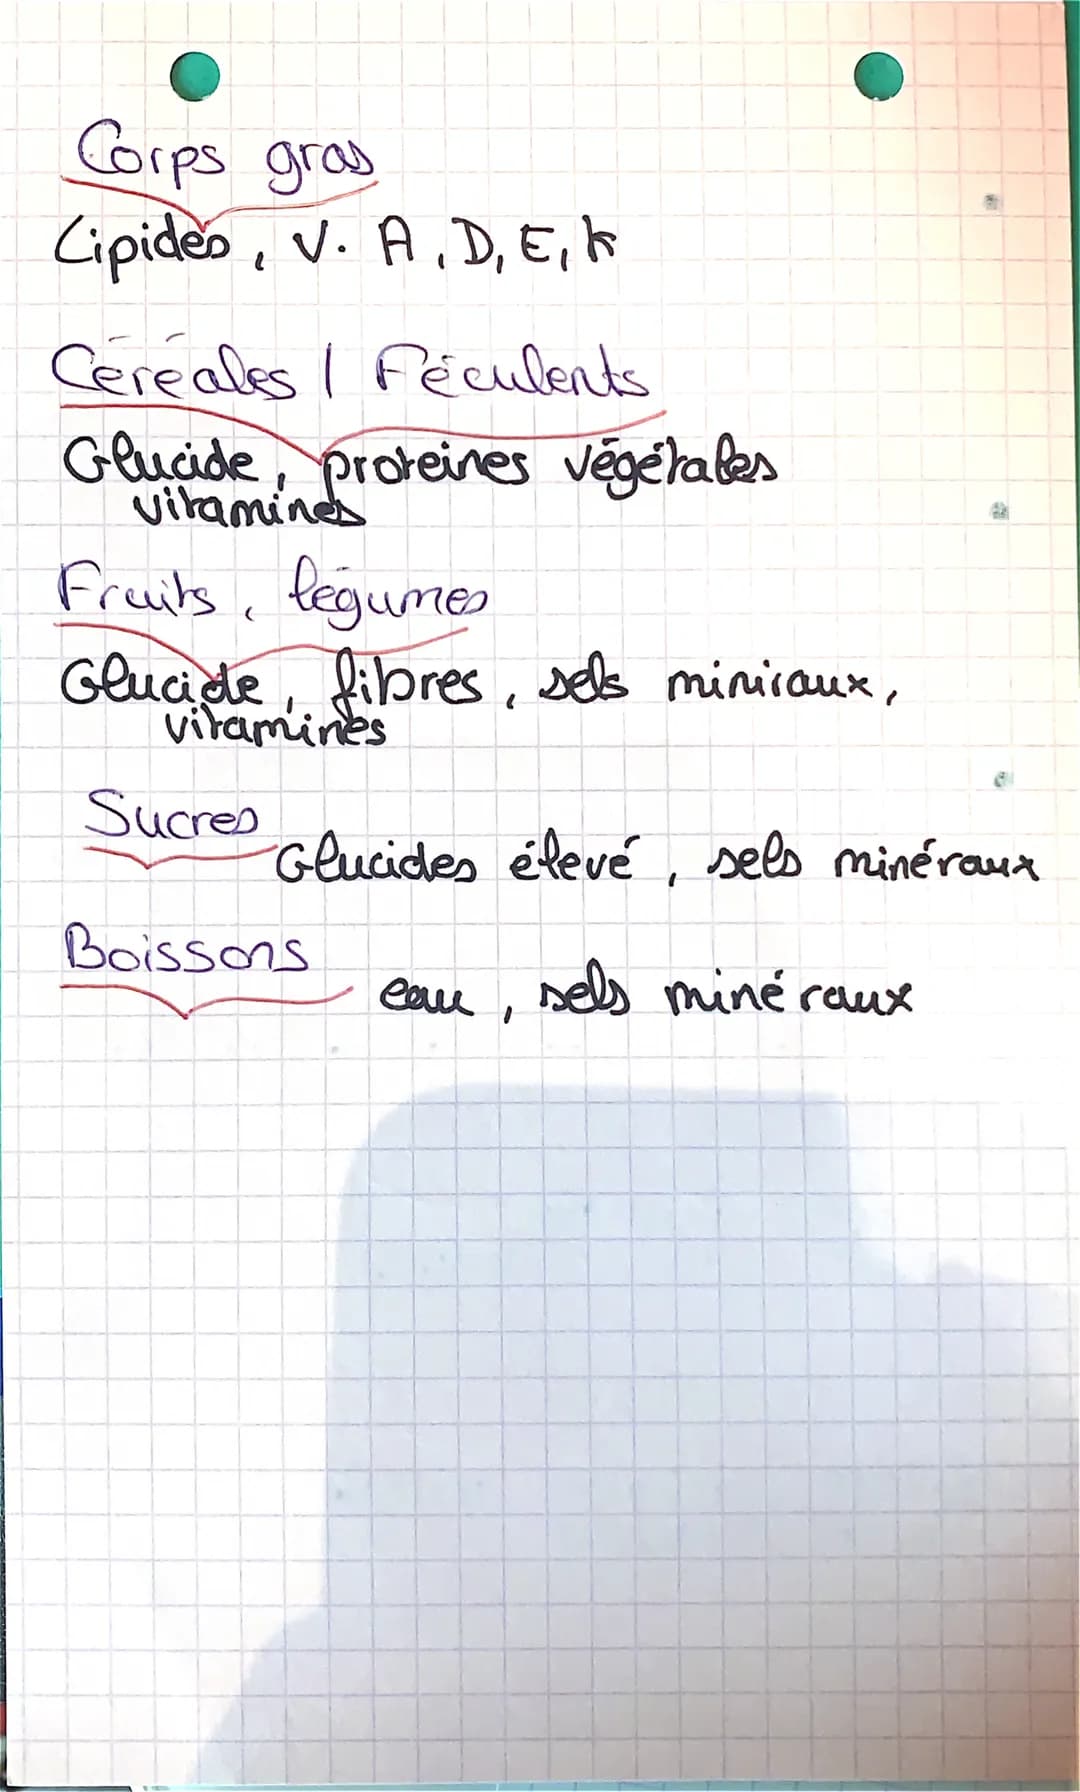 Corps gras
Lipides, V. A, D, E, K
Céréales / Féculents
Glucide, proteines végétales
vitamines
Fruits, légumes
Glucide, fibres, sels miniraux,
vitamines
Sucres
Glucides élevé, sels minéraux
Boissons
eau, sels minéraux